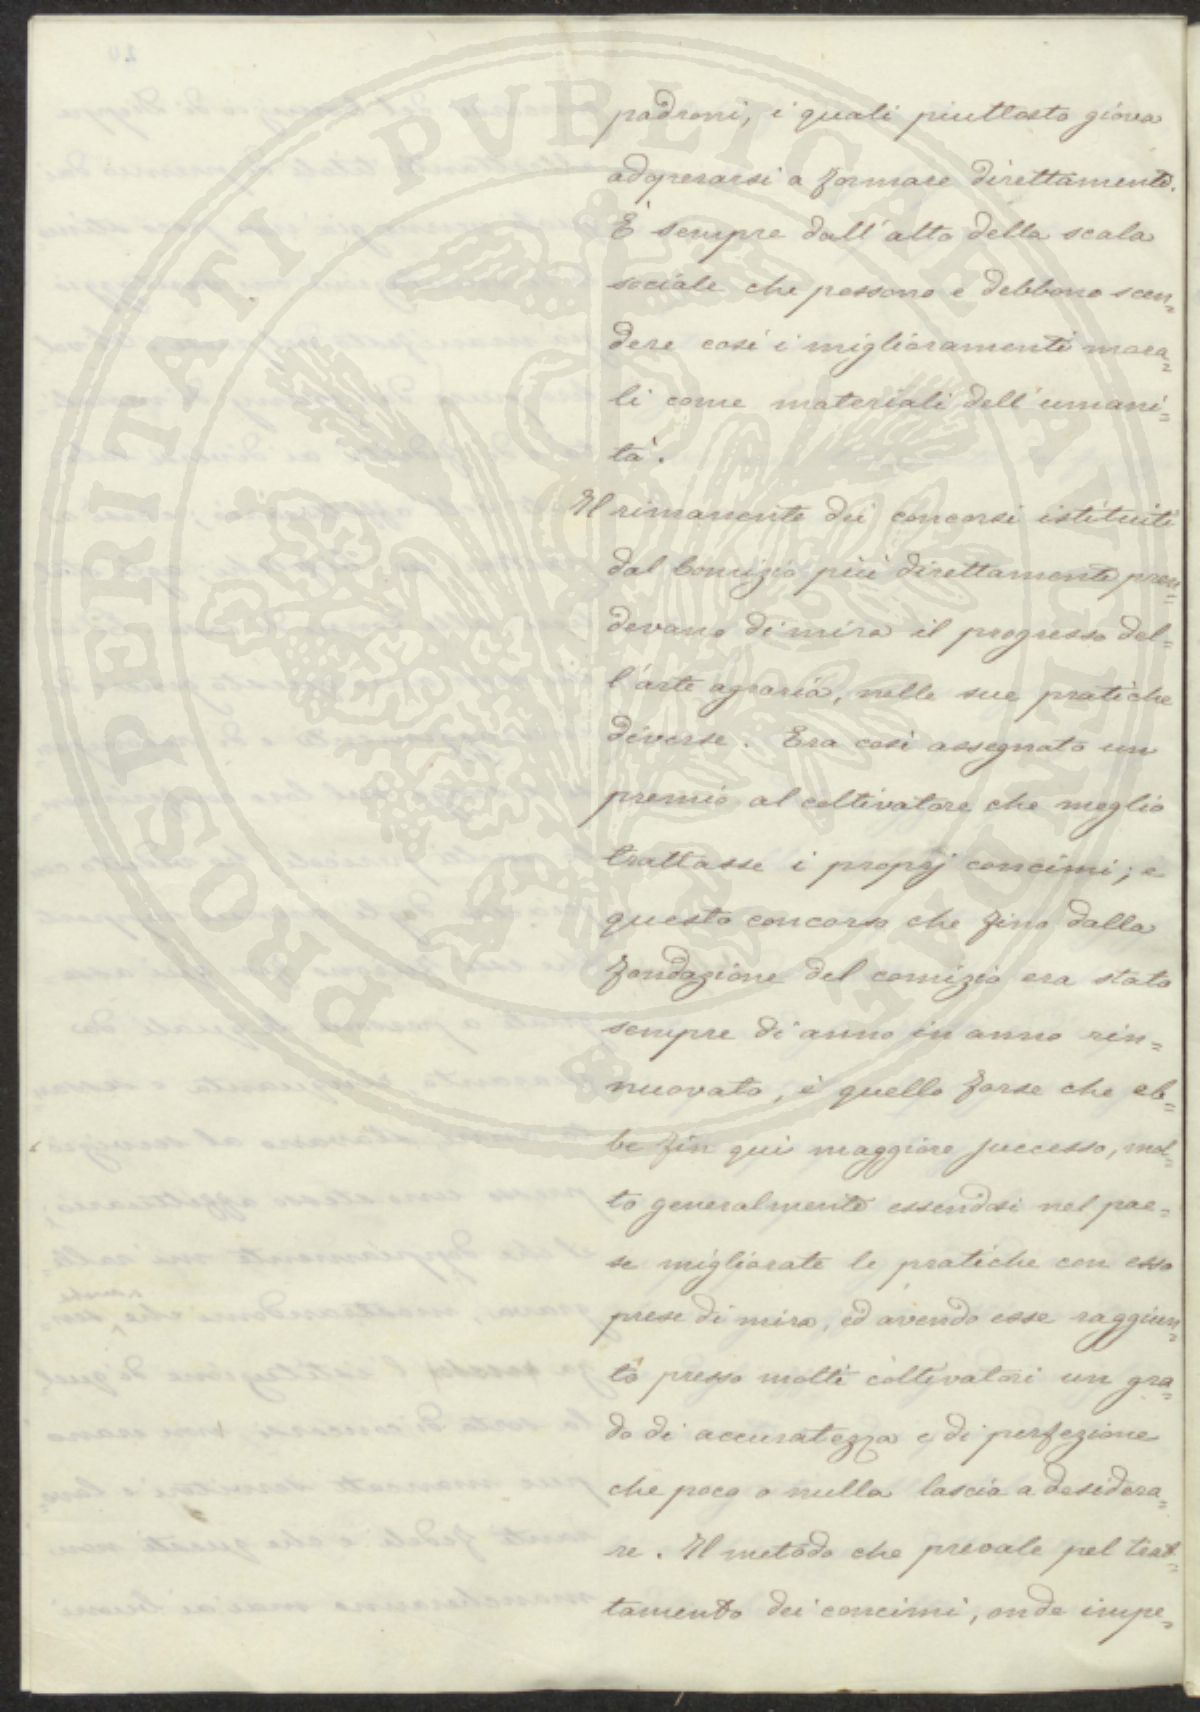 padroni, i quali piuttosto giova
adoperarsi a formare direttamente.
È sempre dall'alto della scala
sociale che possono e debbono scen=
dere così i miglioramenti mora=
li come materiali dell'umani=
tà.
Il rimanente dei concorsi istituiti
dal Comizio più direttamente pren=
devano di mira il progresso del=
l'arte agraria, nelle sue pratiche
diverse. Era così assegnato un
premio al coltivatore che meglio
trattasse i proprj concimi; e
questo concorso che fino dalla
fondazione del comizio era stato
sempre di anno in anno rin=
nuovato, è quello forse che eb=
be fin qui maggiore successo, mol=
to generalmente essendosi nel pae=
se migliorate le pratiche con esso
prese di mira, ed avendo esse raggiun=
to presso molti coltivatori un gra=
do di accuratezza e di perfezione
che poco o nulla lascia a desidera=
re. Il metodo che prevale pel trat=
tamento dei concimi, onde impe=
PROSPERITATI PUBLICAE AUGENDAE